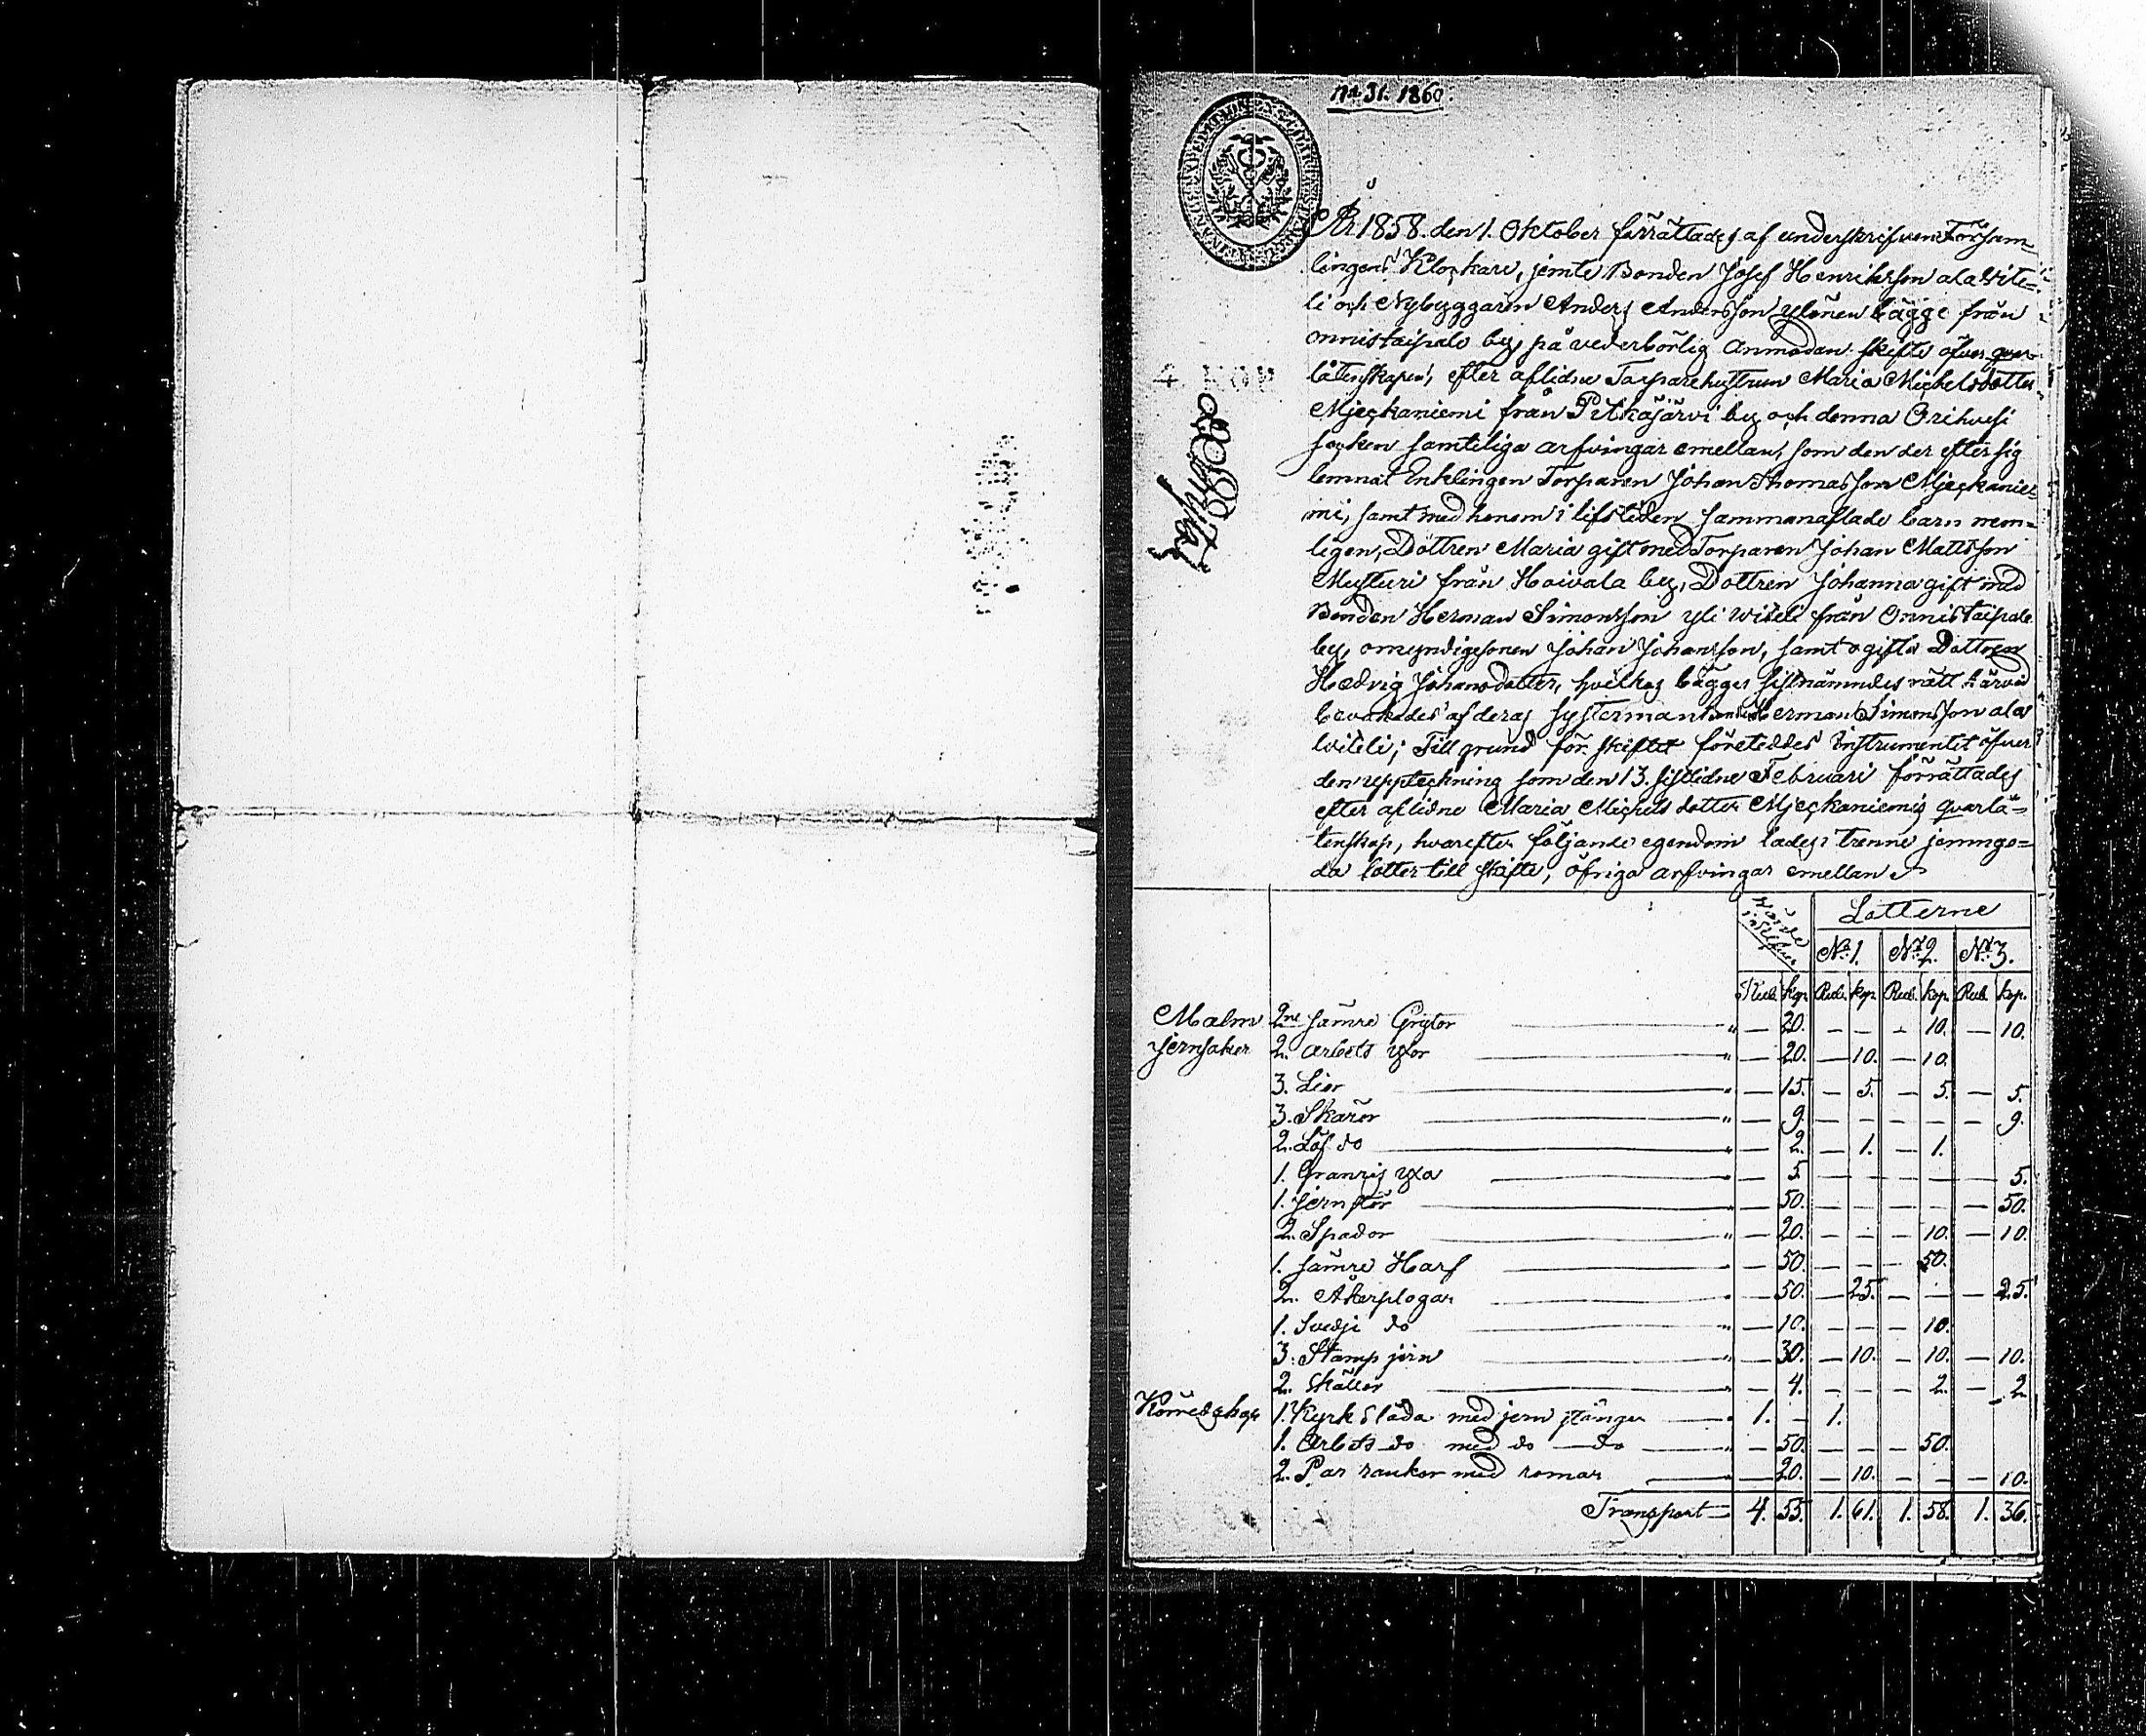 No 31. 1860.
4 KOP
År 1858. den 1. Oktober förrättades af underskrifven Försam-
lingens Klockare, jemte Bonden Josef Henriksson ala Vite-
li och Nybyggaren Anders Andersson Ylönen bägge från
Onnistaipale by, på vederbörlig anmodan skifte öfver qvar-
låtenskapen, efter aflidne Torparehustrun Maria Michelsdotter
Mjeçkaniemi från Pitkäjärvi by och denna Orihvesi
socken samteliga arfvingar emellan, som den der efter sig
lemnat Enklingen Torparen Johan Thomasson Mjeçkanie-
mi, samt med honom i lifstiden sammanaflade barn nem-
ligen, Dottren Maria gift med Torparen Johan Mattsson
från Hoivala by, Dottren Johanna gift med
Bonden Herman Simonsson yli Viteli från Onnistaipale
by, omyndige sonen Johan Johansson, samt ogifta Dottren
Hedvig Johansdotter, hvilkas bägges sistnämndes rätt härvid
bevakades af deras systerman Bonden Herman Simonsson ala
Viteli; Till grund för skiftet företeddes Instrumentet öfver
den uppteckning som den 13. sistlidne Februari förrättades
efter aflidne Maria Michelsdotter Mjeçkaniemis qvarlå-
tenskap, hvarefter följande egendom lades i trenne jemngo-
da lotter till skifte, öfriga arfvingar emellan
Värde i Silfver Lotterne
No 1. No 2. No 3.
Rub. kop. Rub. kop. Rub. kop. Rub. kop.
Malm 2ne sämre Grytor " — 20. — — — 10. — 10.
Jernsaker 2. Arbets yxor " — 20. — 10. — 10.
3. Lior " — 15. — 5. — 5. — 5.
3. Skäror " — 9. — — — — — 9.
2. Löf do " — 2. — 1. — 1.
1. Granris yxa — 5. — — — — — 5.
1. Jernstör — 50. — — — — — 50.
2. Spador " — 20. — — — 10. — 10.
1. sämre Harf — 50. — — — 50.
2. Åkerplogar — 50. — 25. — — — 25.
1. Svedje do " — 10. — — — 10.
3. Stamp jern " — 30. — 10. — 10. — 10.
2. Skällor " — 4. — — — 2. — 2.
Köredskap 1. Kyrk Släda med jern stänger " 1. — 1.
1. Arbets do med do — do " — 50. — — — 50.
2. Par rankor med remar — 20. — 10. — — — 10.
Transport 4. 55. 1. 61. 1. 58. 1. 36.